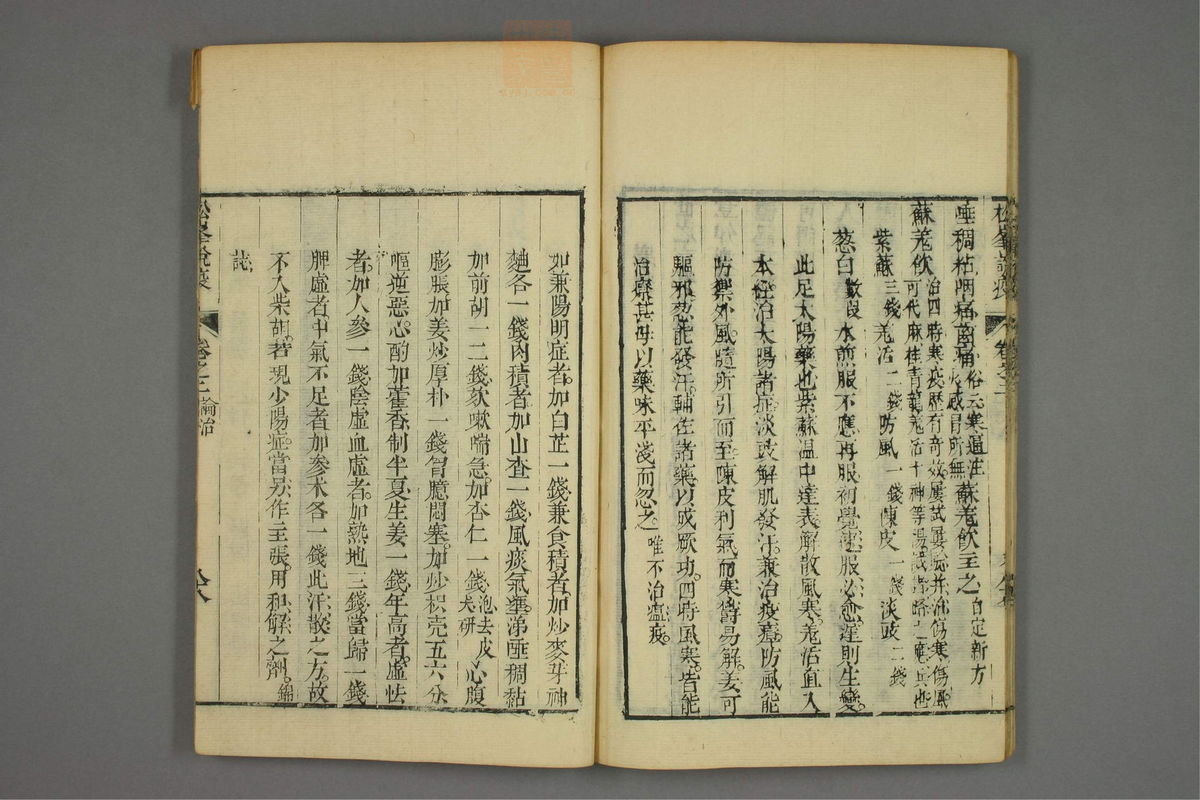 唾稠粘咽痛啇痛 蘇羗飲主之 自定新方
蘇羗飲 治四時寒疫歷有奇效屢試屢驗并治傷寒傷風
可代麻桂青龍羗活十神等湯
紫蘇三錢 羗活二錢 防風一錢 陳皮一錢 淡豉二錢
葱白數段 水煎服不應再服初覺速服必愈遲則生變
此足太陽藥也紫蘇温中達表解散風寒羗活直入
本經治太陽諸症淡豉解肌發汗兼治疫瘧防風能
防禦外風隨所引而至陳皮利氣而寒鬱易解姜可
驅邪葱能發汗輔佐諸藥以成厥功四時風寒皆能
治療其毋以藥味平淺而忽之 唯不治瘟疫
如兼陽明症者加白芷一錢兼食積者加炒麥芽神
麯各一錢肉積者加山查一錢風痰氣壅涕唾稠黏
加前胡一二錢欬嗽喘急加杏仁一錢泡去皮尖研心腹
膨脹加姜炒厚朴一錢胷臆悶塞加炒枳壳五六分
嘔逆惡心酌加藿香制半夏生姜一錢年高者虛怯
者加人參一錢陰虛血虛者加熟地三錢當歸一錢
脾虛者中氣不足者加參术各一錢此汗散之方故
不入柴胡若現少陽症當另作主張用和解之劑錦
誌
松峯說疫 卷之二 論治 八六